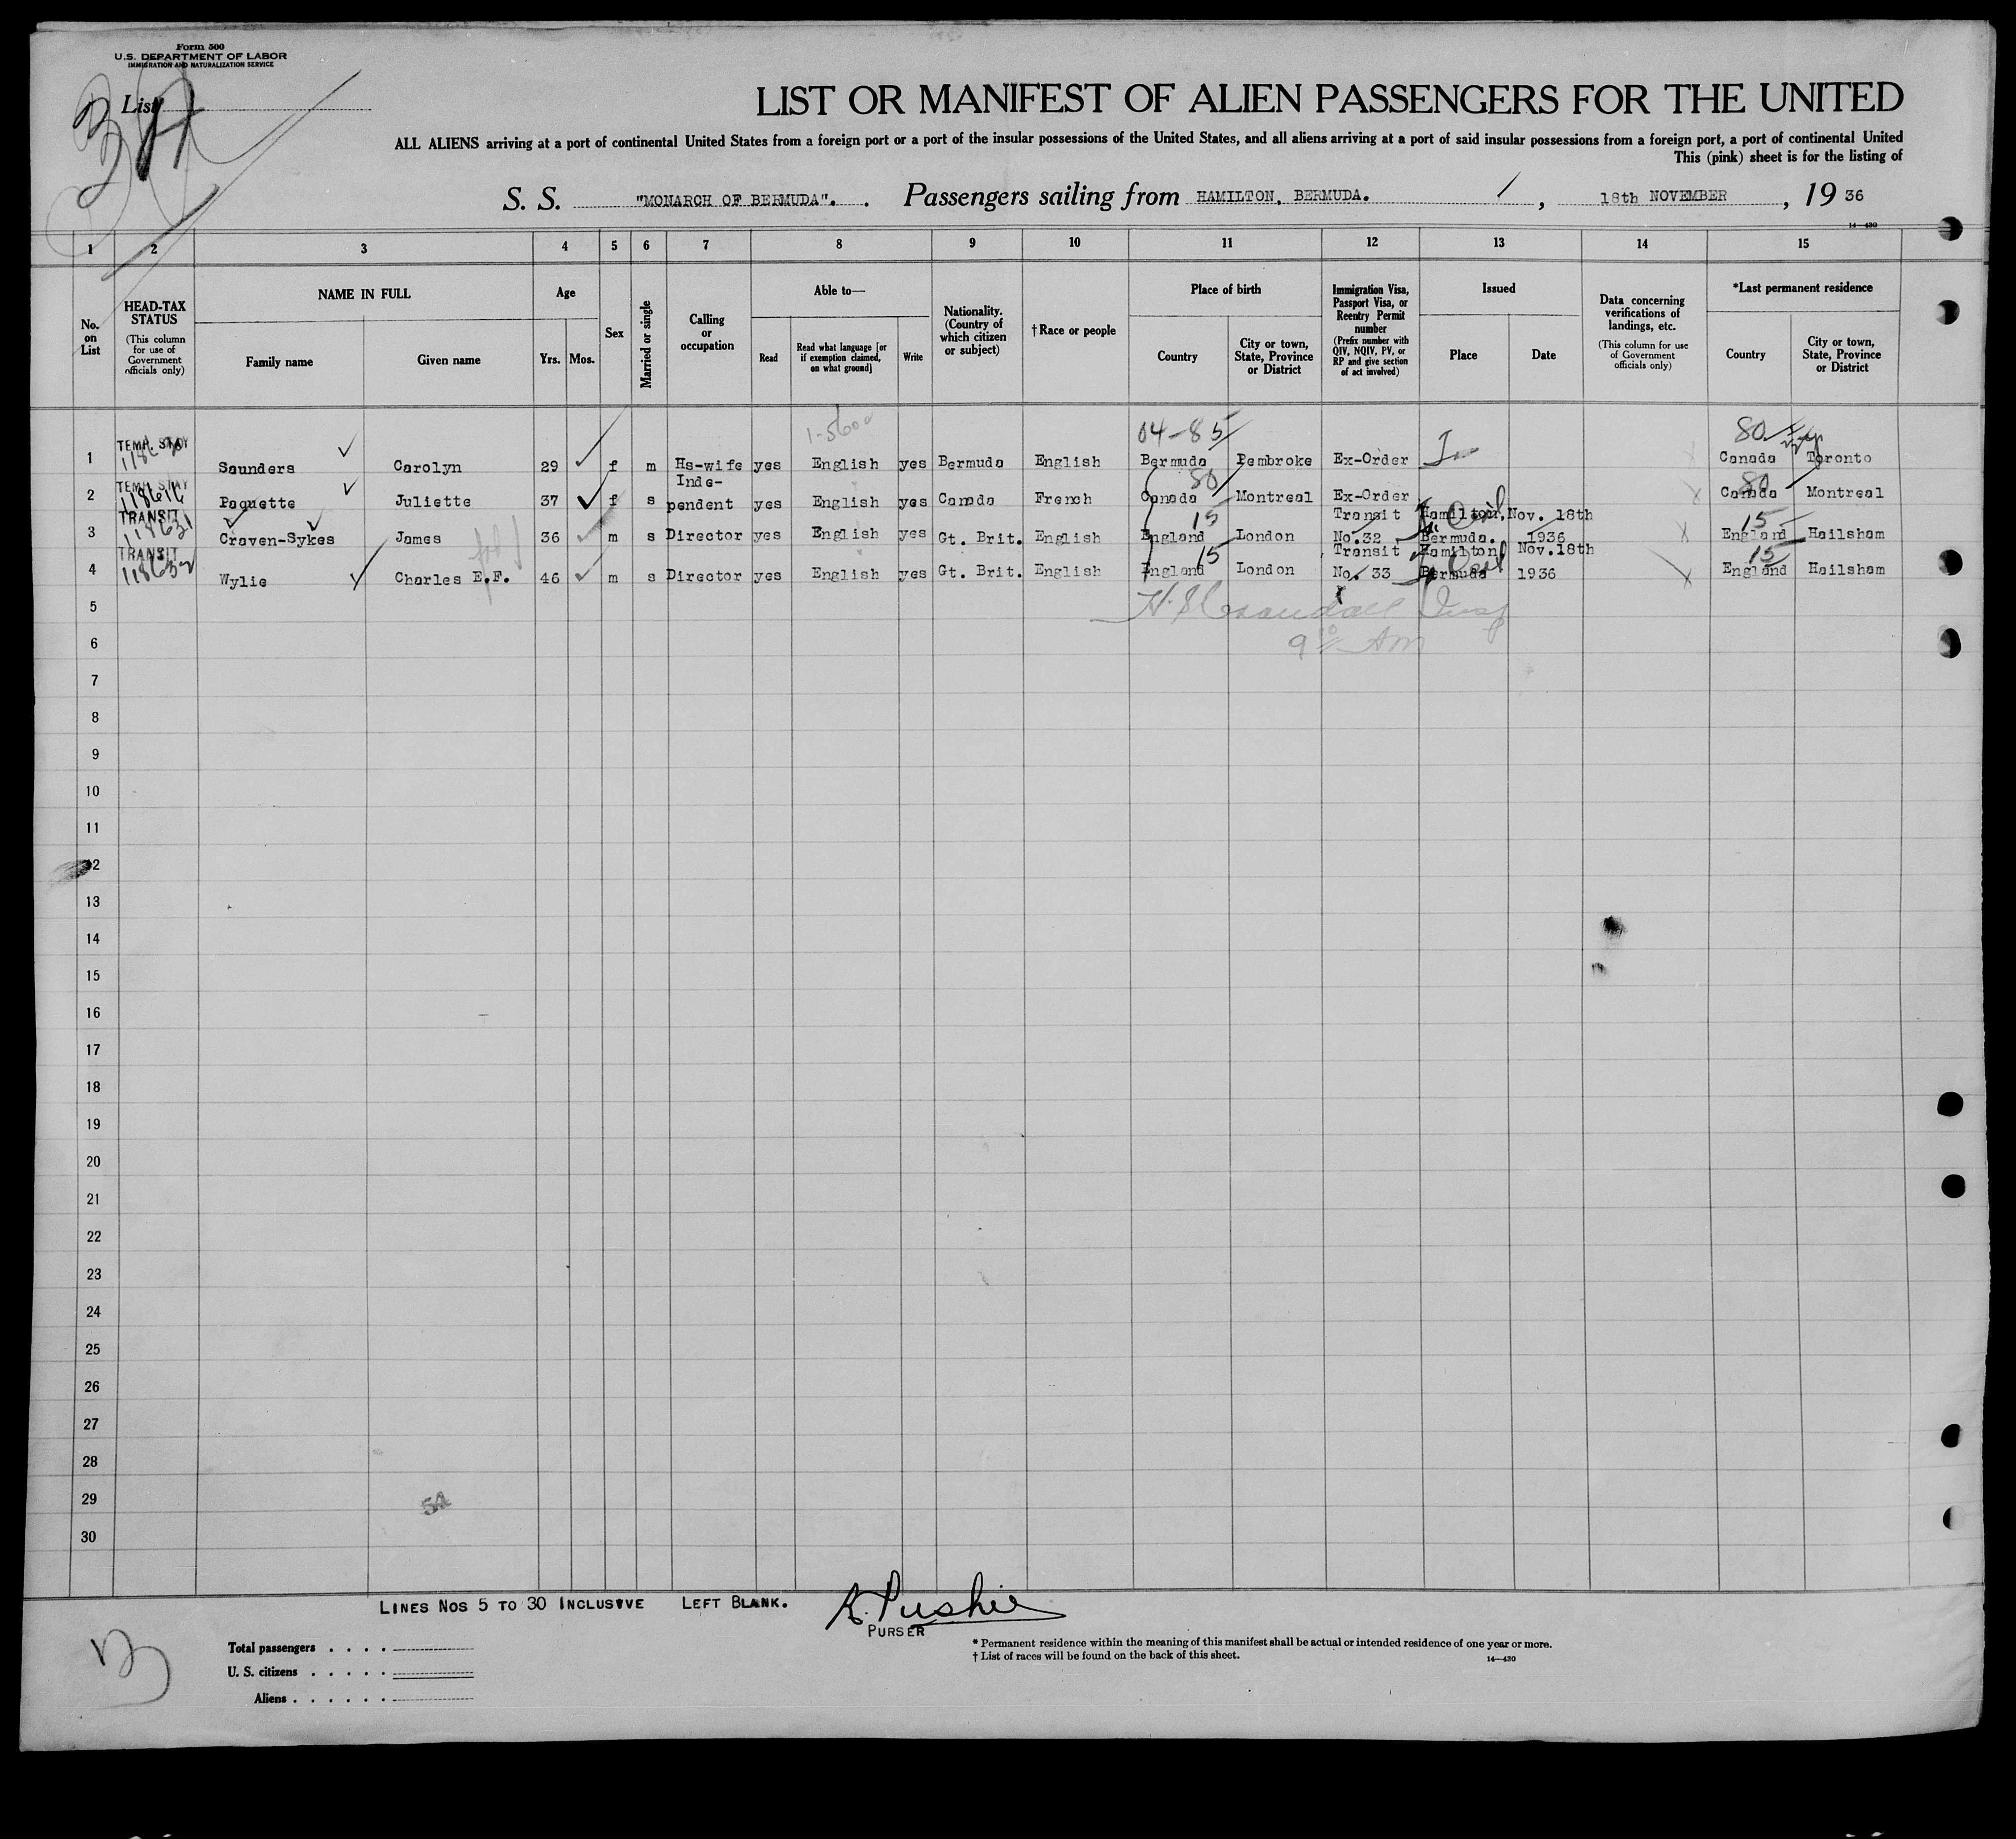 Form 500
U.S. DEPARTMENT OF LABOR
IMMIGRATION AND NATURALIZATION SERVICE
List
LIST OR MANIFEST OF ALIEN PASSENGERS FOR THE UNITED
ALL ALIENS arriving at a port of continental United States from a foreign port or a port of the insular possessions of the United States, and all aliens arriving at a port of said insular possessions from a foreign port, a port of continental United
This (pink) sheet is for the listing of
S. S. "MONARCH OF BERMUDA". Passengers sailing from HAMILTON, BERMUDA. , 18th NOVEMBER , 19 36
14—430
1 2 3 4 5 6 7 8 9 10 11 12 13 14 15
No. on List
HEAD-TAX STATUS (This column for use of Government officials only)
NAME IN FULL Family name Given name
Age Yrs. Mos.
Sex
Married or single
Calling or occupation
Able to— Read Read what language [or if exemption claimed, on what ground] Write
Nationality. (Country of which citizen or subject)
†Race or people
Place of birth Country City or town, State, Province or District
Immigration Visa, Passport Visa, or Reentry Permit number (Prefix number with QIV, NQIV, PV, or RP and give section of act involved)
Issued Place Date
Data concerning verifications of landings, etc. (This column for use of Government officials only)
*Last permanent residence Country City or town, State, Province or District
1-5600 04-85 80
1 TEMP. STAY Saunders Carolyn 29 f m Hs-wife yes English yes Bermuda English Bermuda Pembroke Ex-Order Canada Toronto
80 80
2 TEMP. STAY 118616 Paquette Juliette 37 f s Inde-pendent yes English yes Canada French Canada Montreal Ex-Order Canada Montreal
15 15
3 TRANSIT Craven-Sykes James 36 m s Director yes English yes Gt. Brit. English England London Transit No.32 Hamilton, Bermuda. Nov. 18th 1936 England Hailsham
15 15
4 TRANSIT Wylie Charles E.F. 46 m s Director yes English yes Gt. Brit. English England London Transit No. 33 Hamilton Bermuda Nov.18th 1936 England Hailsham
5
6
7
8
9
10
11
12
13
14
15
16
17
18
19
20
21
22
23
24
25
26
27
28
29
30
LINES NOS 5 TO 30 INCLUSIVE LEFT BLANK.
PURSER
Total passengers . . . .
U. S. citizens . . . . .
Aliens . . . . . .
* Permanent residence within the meaning of this manifest shall be actual or intended residence of one year or more.
† List of races will be found on the back of this sheet.
14—430